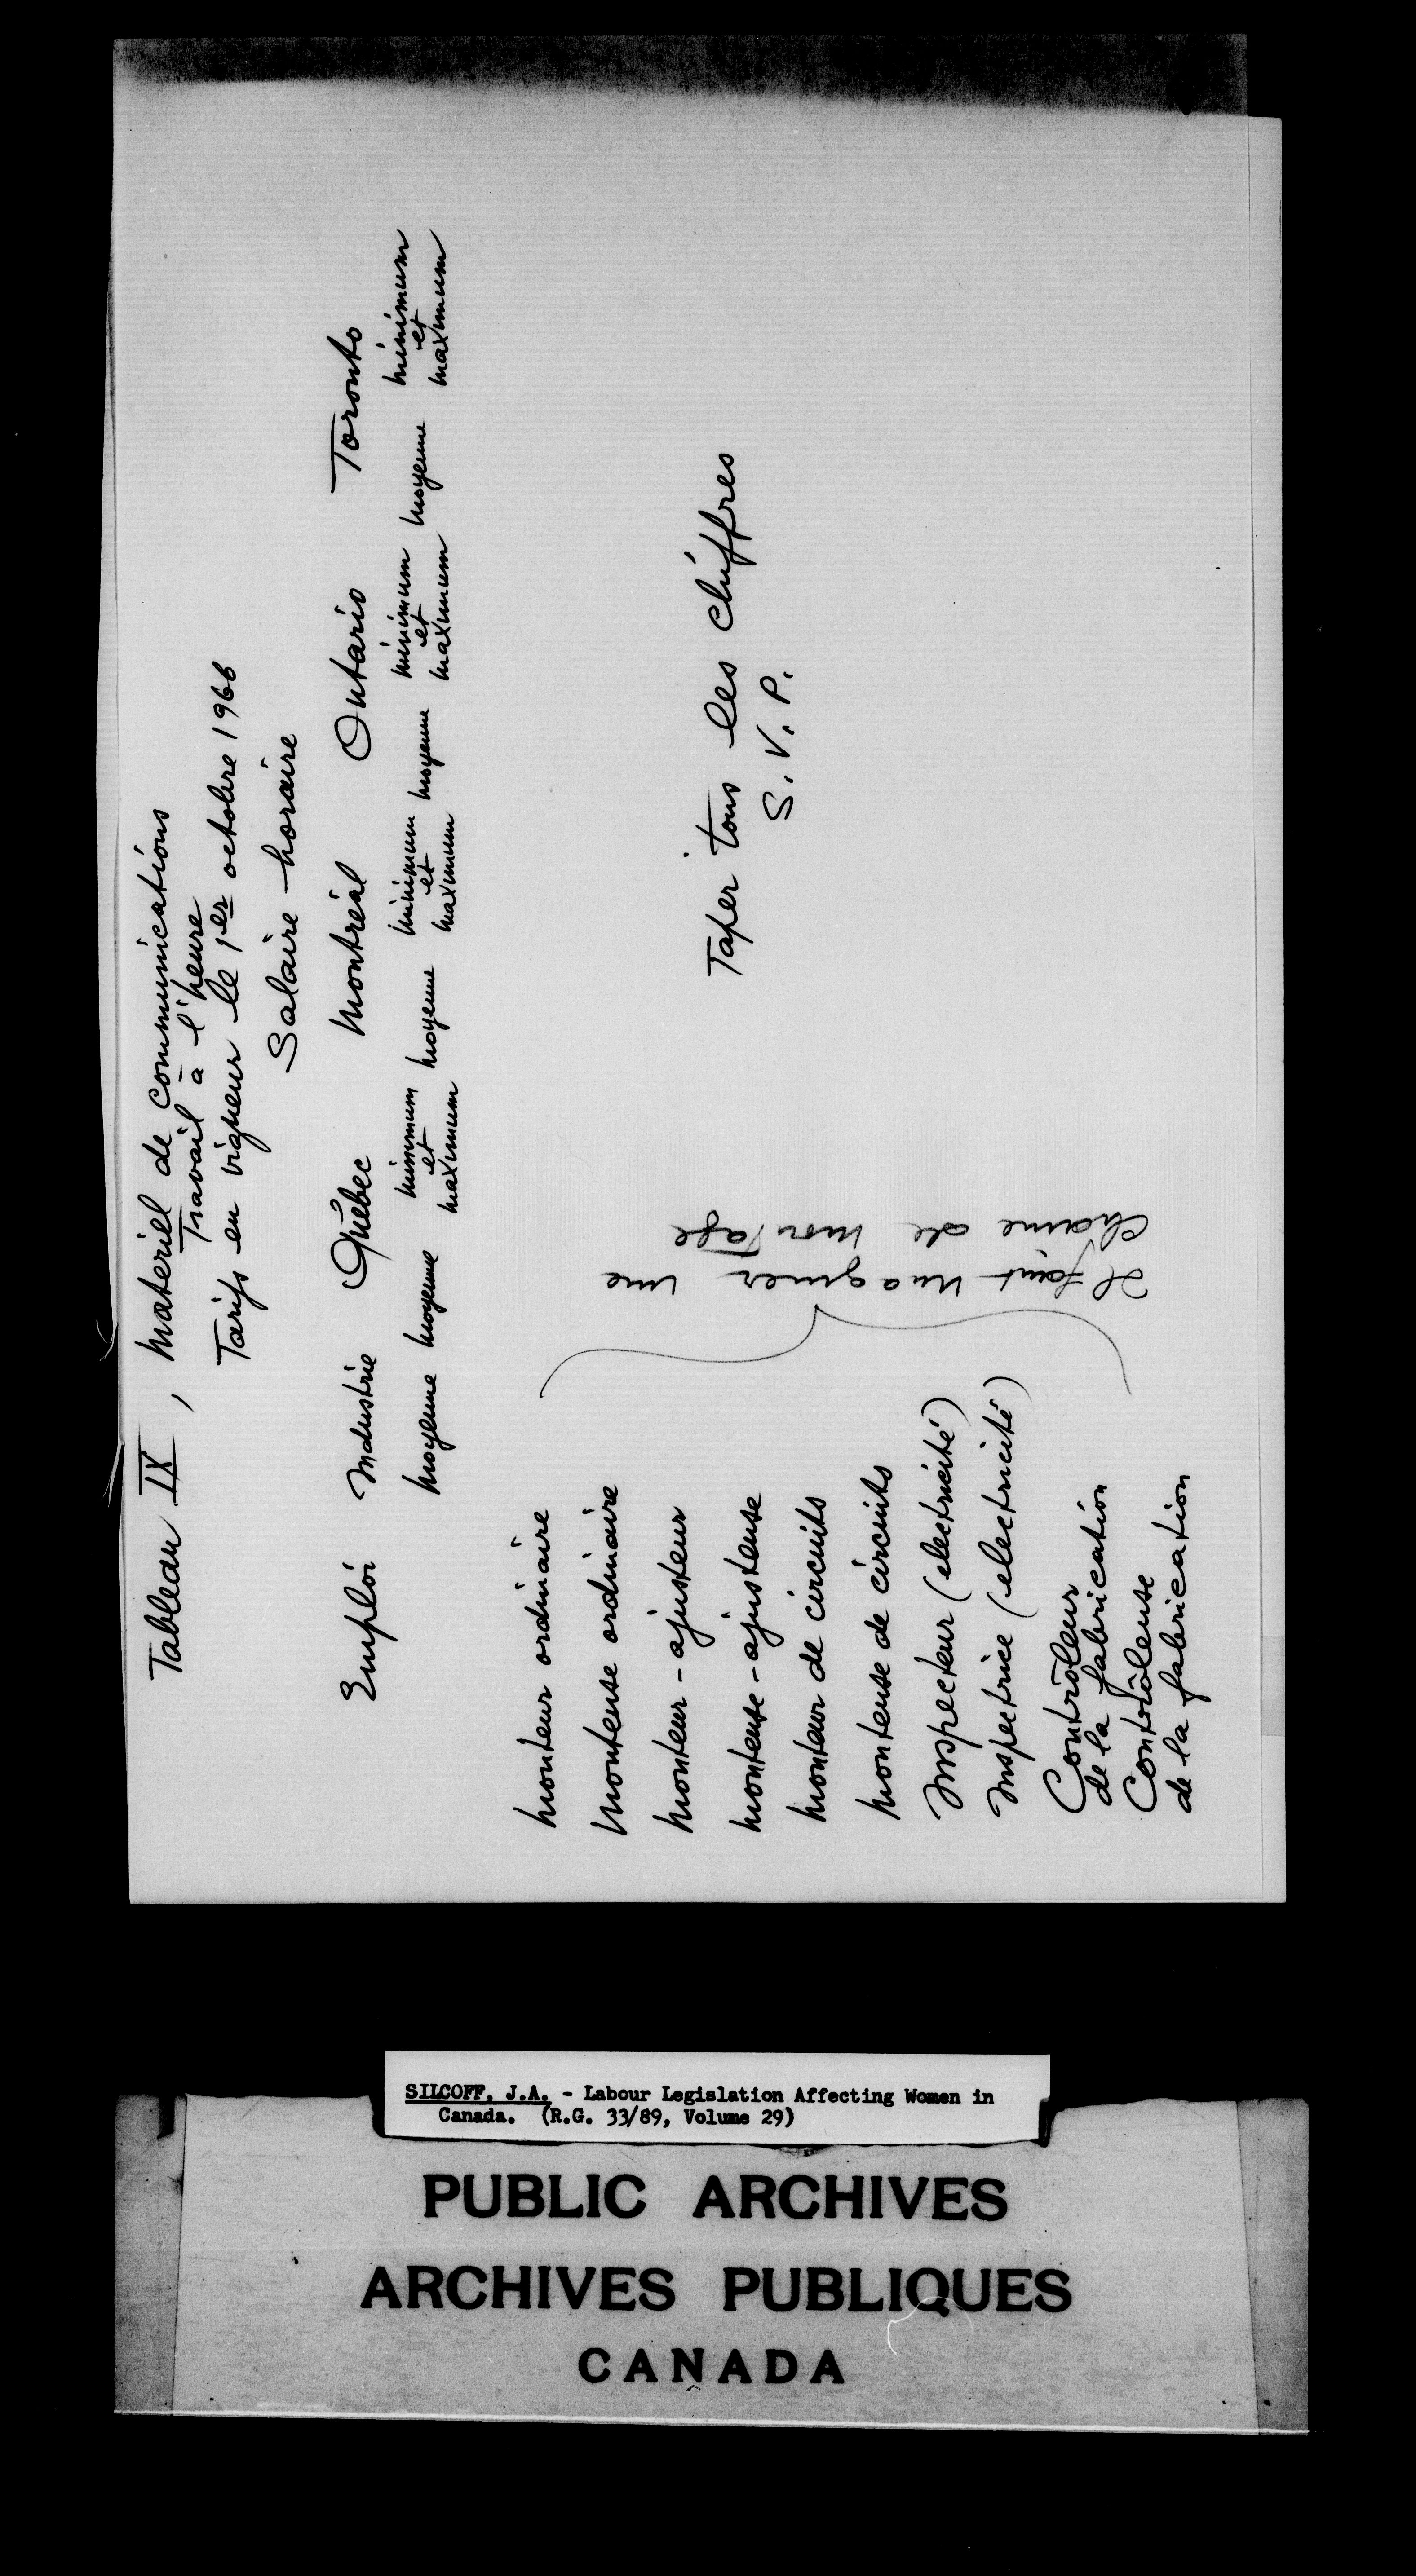 Tableau IX, Matériel de Communications
Travail à l'heure
Tarifs en vigueur le 1er octobre 1966
Salaire horaire
Emploi Industrie Québec Montréal Ontario Toronto
moyenne moyenne minimum et maximum moyenne minimum et maximum moyenne minimum et maximum moyenne minimum et maximum
monteur ordinaire
monteuse ordinaire
monteur-ajusteur
monteuse-ajusteuse
monteur de circuits
monteuse de circuits
Inspecteur (électricité)
Inspectrice (électricité)
Contrôleur
de la fabrication
Contrôleuse
de la fabrication
Il faut imaginer une
chaine de montage
Taper tous les chiffres
S.V.P.
SILCOFF, J.A. - Labour Legislation Affecting Women in
Canada. (R.G. 33/89, Volume 29)
PUBLIC ARCHIVES
ARCHIVES PUBLIQUES
CANADA